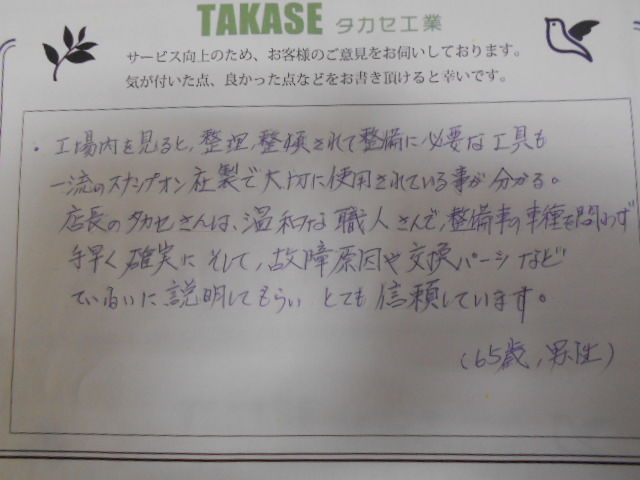 TAKASE タカセ工業
サービス向上のため、お客様のご意見をお伺いしております。
気が付いた点、良かった点などをお書き頂けると幸いです。
・工場内を見ると、整理、整頓されて整備に必要な工具も
一流のスナップオン社製で大切に使用されている事が分かる。
店長のタカセさんは、温和な職人さんで、整備車の車種を問わず
手早く確実に そして、故障原因や交換パーツなど
ていねいに説明してもらい とても信頼しています。
(65歳、男性)